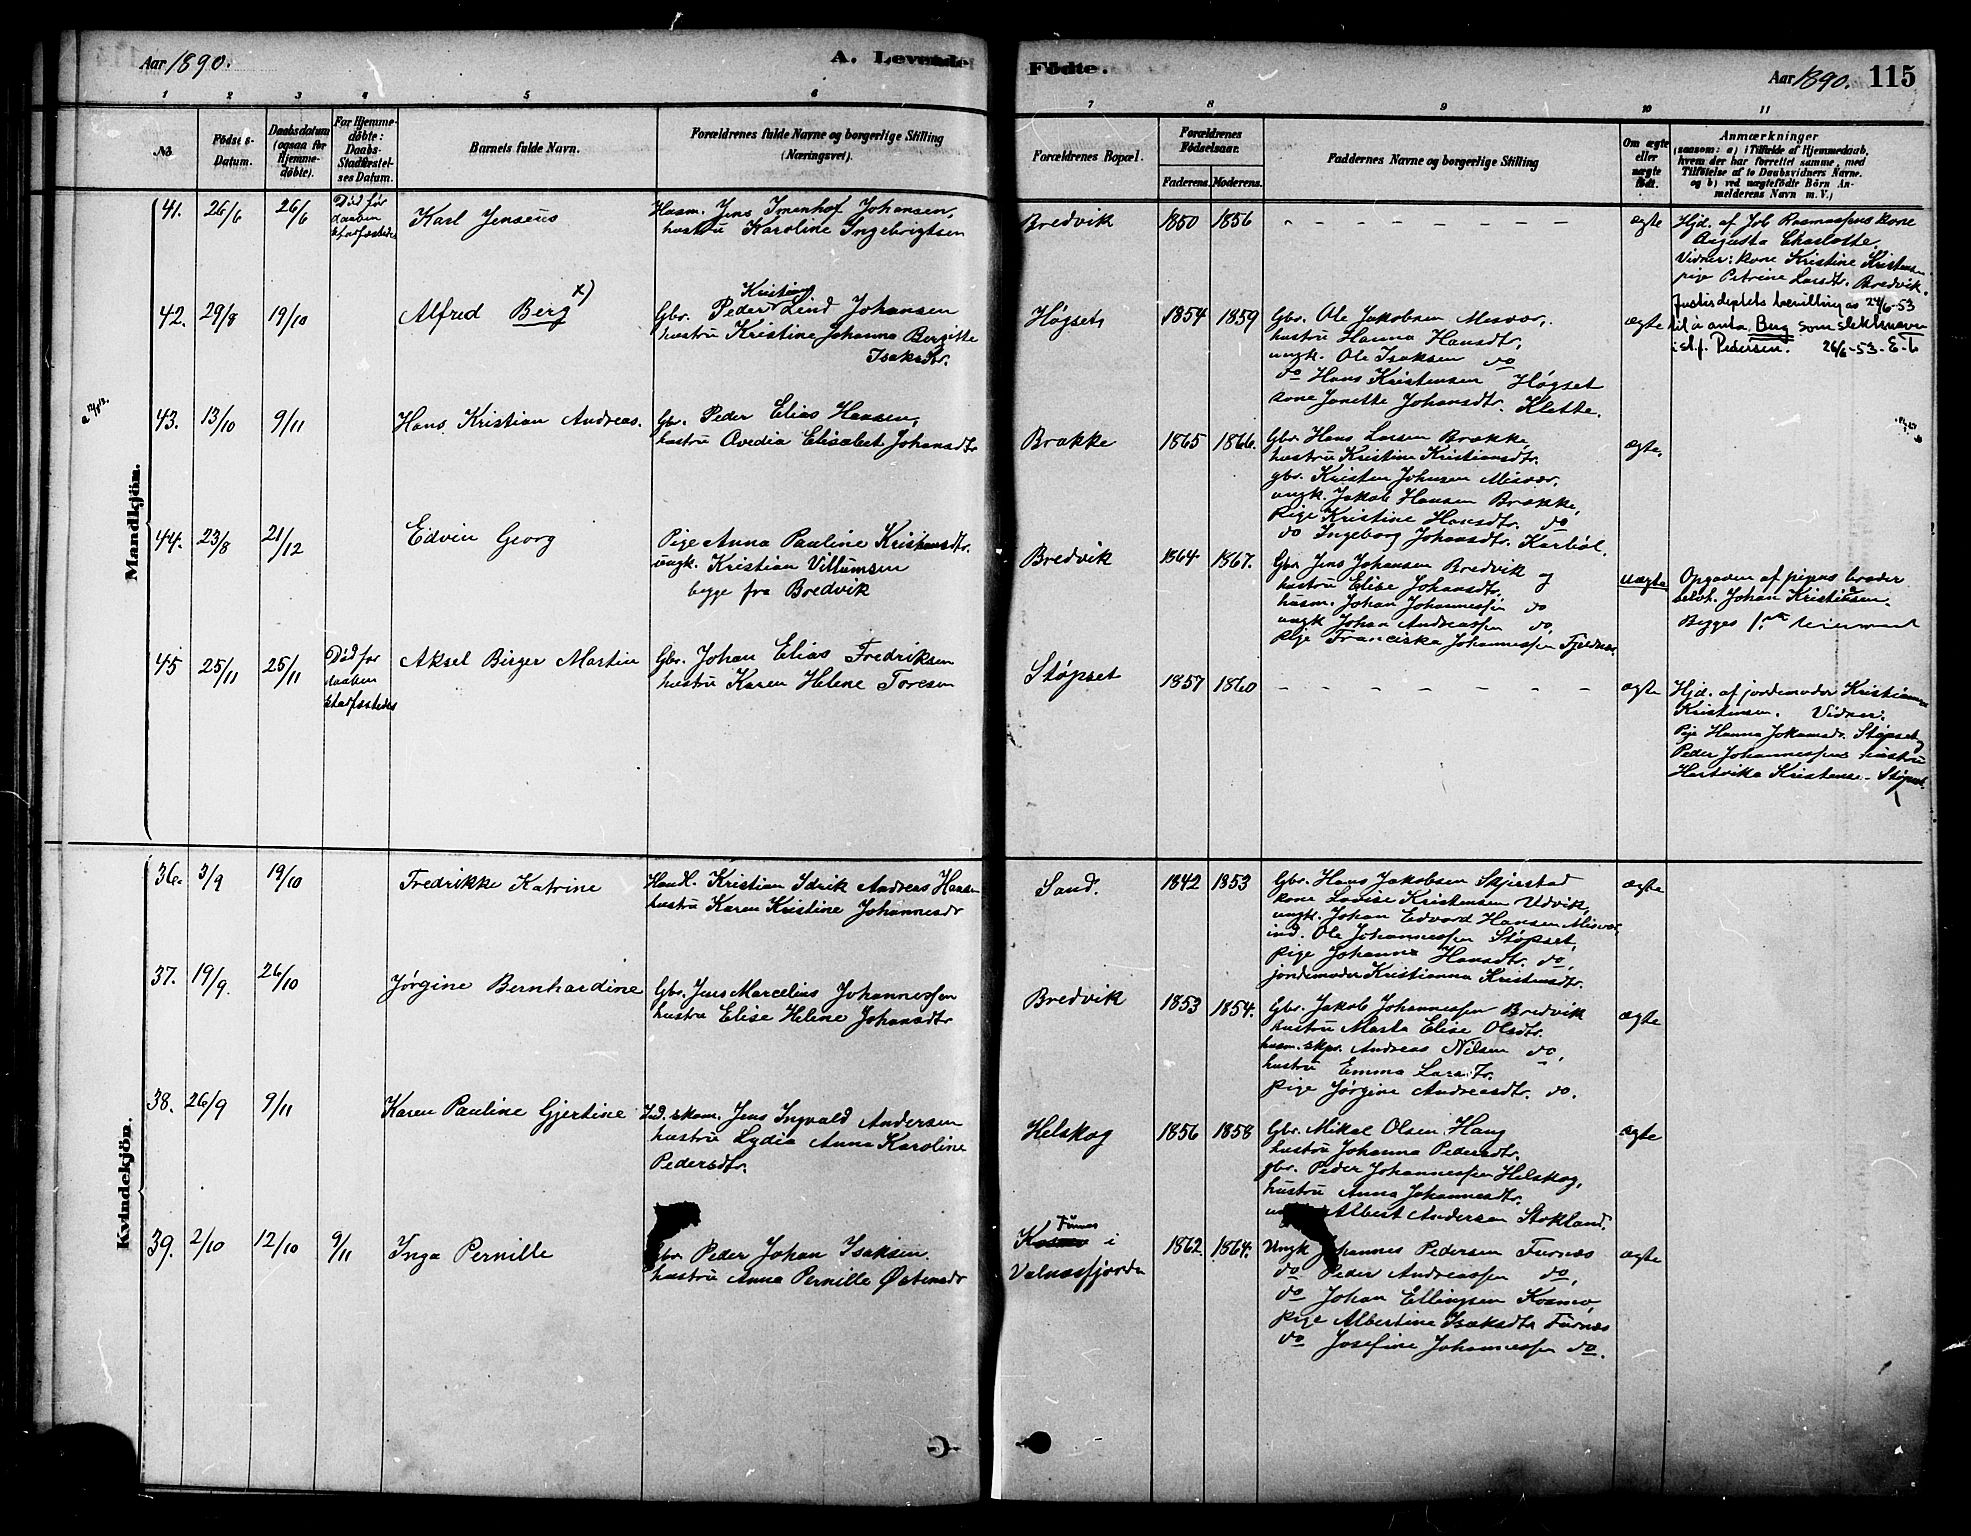 Aar 1890.
A. Levende
Fødte.
Aar 1890. 115
1 2 3 4 5 6 7 8 9 10 11
No.
Fødsels-
Datum.
Daabsdatum
(ogsaa for
Hjemme-
døbte).
For Hjemme-
døbte:
Daabs-
Stadfæstel-
ses Datum.
Barnets fulde Navn.
Forældrenes fulde Navne og borgerlige Stilling
(Næringsvei).
Forældrenes Bopæl.
Forældrenes
Fødselsaar.
Faderens. Moderens.
Faddernes Navne og borgerlige Stilling
Om ægte
eller
uægte
født.
Anmærkninger
(saasom: a) i Tilfælde af Hjemmedaab,
hvem der har forrettet samme, med
Tilføielse af to Daabsvidners Navne.
og b) ved uægtefødte Børn An-
melderens Navn m. V.)
Mandkjøn.
41. 26/6 26/6
Død før
daaben
stadfæstedes
Karl Jenseus
Husm. Jens Imenhof Johansen,
hustru Karoline Ingebrigtsen
Bredvik 1850 1856 - - - - - - - ægte
Hjd. af Job Rasmussens kone
Augusta Charlotte.
Vidner: kone Kristine Kristensen
pige Petrine Larsdtr. Bredvik.
42. 29/8 19/10 Alfred Berg x)
Kristian
Gbr. Peder Lind Johansen
hustru Kristine Johanna Bergitte
Isaksdtr.
Høgset 1854 1859
Gbr. Ole Jakobsen Misvær,
hustru Hanna Hansdtr,
ungk. Ole Isaksen do
do Hans Kristensen Høgset
kone Janette Johansdtr. Klette.
ægte
Justisdeptets bevilling av 24/6-53
til å anta Berg som slektsnavn
i st.f. Pedersen. 26/6-53. E.L
43. 13/10 9/11 Hans Kristian Andreas.
Gbr. Peder Elias Hansen,
hustru Ovedia Elisabet Johansdtr
Brække 1865 1866.
Gbr. Hans Larsen Brække,
hustru Kristine Kristiansdtr.
gbr. Kristen Johnsen Misvær,
ungk. Jakob Hansen Brække,
Pige Kristine Hansdtr. do
do Ingeborg Johansdtr. Karbøl.
ægte.
44. 23/8 21/12 Edvin Georg
Pige Anna Pauline Kristiansdtr.
ungk. Kristian Villumsen
begge fra Bredvik
Bredvik 1864 1867.
Gbr. Jens Johansen Bredvik og
hustru Elise Johansdtr.
husm. Johan Johannessen do
ungk Johan Andreassen do,
Pige Franciska Johannessen Fjeldnes.
uægte
Opgaven af pigens broder
selvst. Johan Kristiansen.
Begges 1ste leiermaal
45 25/11 25/11
Død før
daaben
stadfæstedes
Aksel Birger Martin
Gbr. Johan Elias Fredriksen
hustru Karen Helene Toresen
Støpset 1857 1860 - - - - - - - ægte
Hjd. af jordemoder Kristianna
Kristensen. Vidner:
Pige Hanna Johansdr. Støpset og
Peder Johannessens hustru
Hartvika Kristense- Støpset.
Kvindekjøn.
36. 3/9 19/10 Fredrikke Katrine
Handl. Kristian Idrik Andreas Hansen
hustru Karen Kristine Johannesdr
Sand. 1842 1853
Gbr. Hans Jakobsen Skjerstad
kone Lovise Kristensen Udvik,
ungk. Johan Edvard Hansen Misvær,
ind. Ole Johannessen Støpset,
Pige Johanna Hansdtr. do,
jordemoder Kristianna Kristensdtr.
ægte
37. 19/9. 26/10 Jørgine Bernhardine
Gbr. Jens Marcelius Johannessen
hustru Elise Helene Johansdtr
Bredvik 1853 1854.
Gbr. Jakob Johannessen Bredvik
hustru Marta Elise Olsdtr.
husm. skpr. Andreas Nilsen do,
hustru Emma Larsdtr.
Pige Jørgine Andreasdtr. do.
ægte
38. 26/9 9/11 Karen Pauline Gjertine
Ind. skom. Jens Ingvald Andersen
hustru Lydia Anna Karoline
Pedersdtr.
Helskog 1856 1858
Gbr. Mikal Olsen Haug
hustru Johanna Pedersdtr.
gbr. Peder Johannessen Helskog,
hustru Anna Johannesdtr.
Albert Andersen Stokland.
ægte
39. 2/10 12/10 9/11 Inga Pernille
Gbr. Peder Johan Isaksen
hustru Anna Pernille Østensdr
Furnes
Kosmo i
Valnesfjorden
1862 1864.
Ungk Johannes Pedersen Furnæs
do Peder Andreassen do,
do Johan Ellingsen Kosmo,
Pige Albertine Isaksdtr Furnæs
do Josefine Johannessen do.
ægte